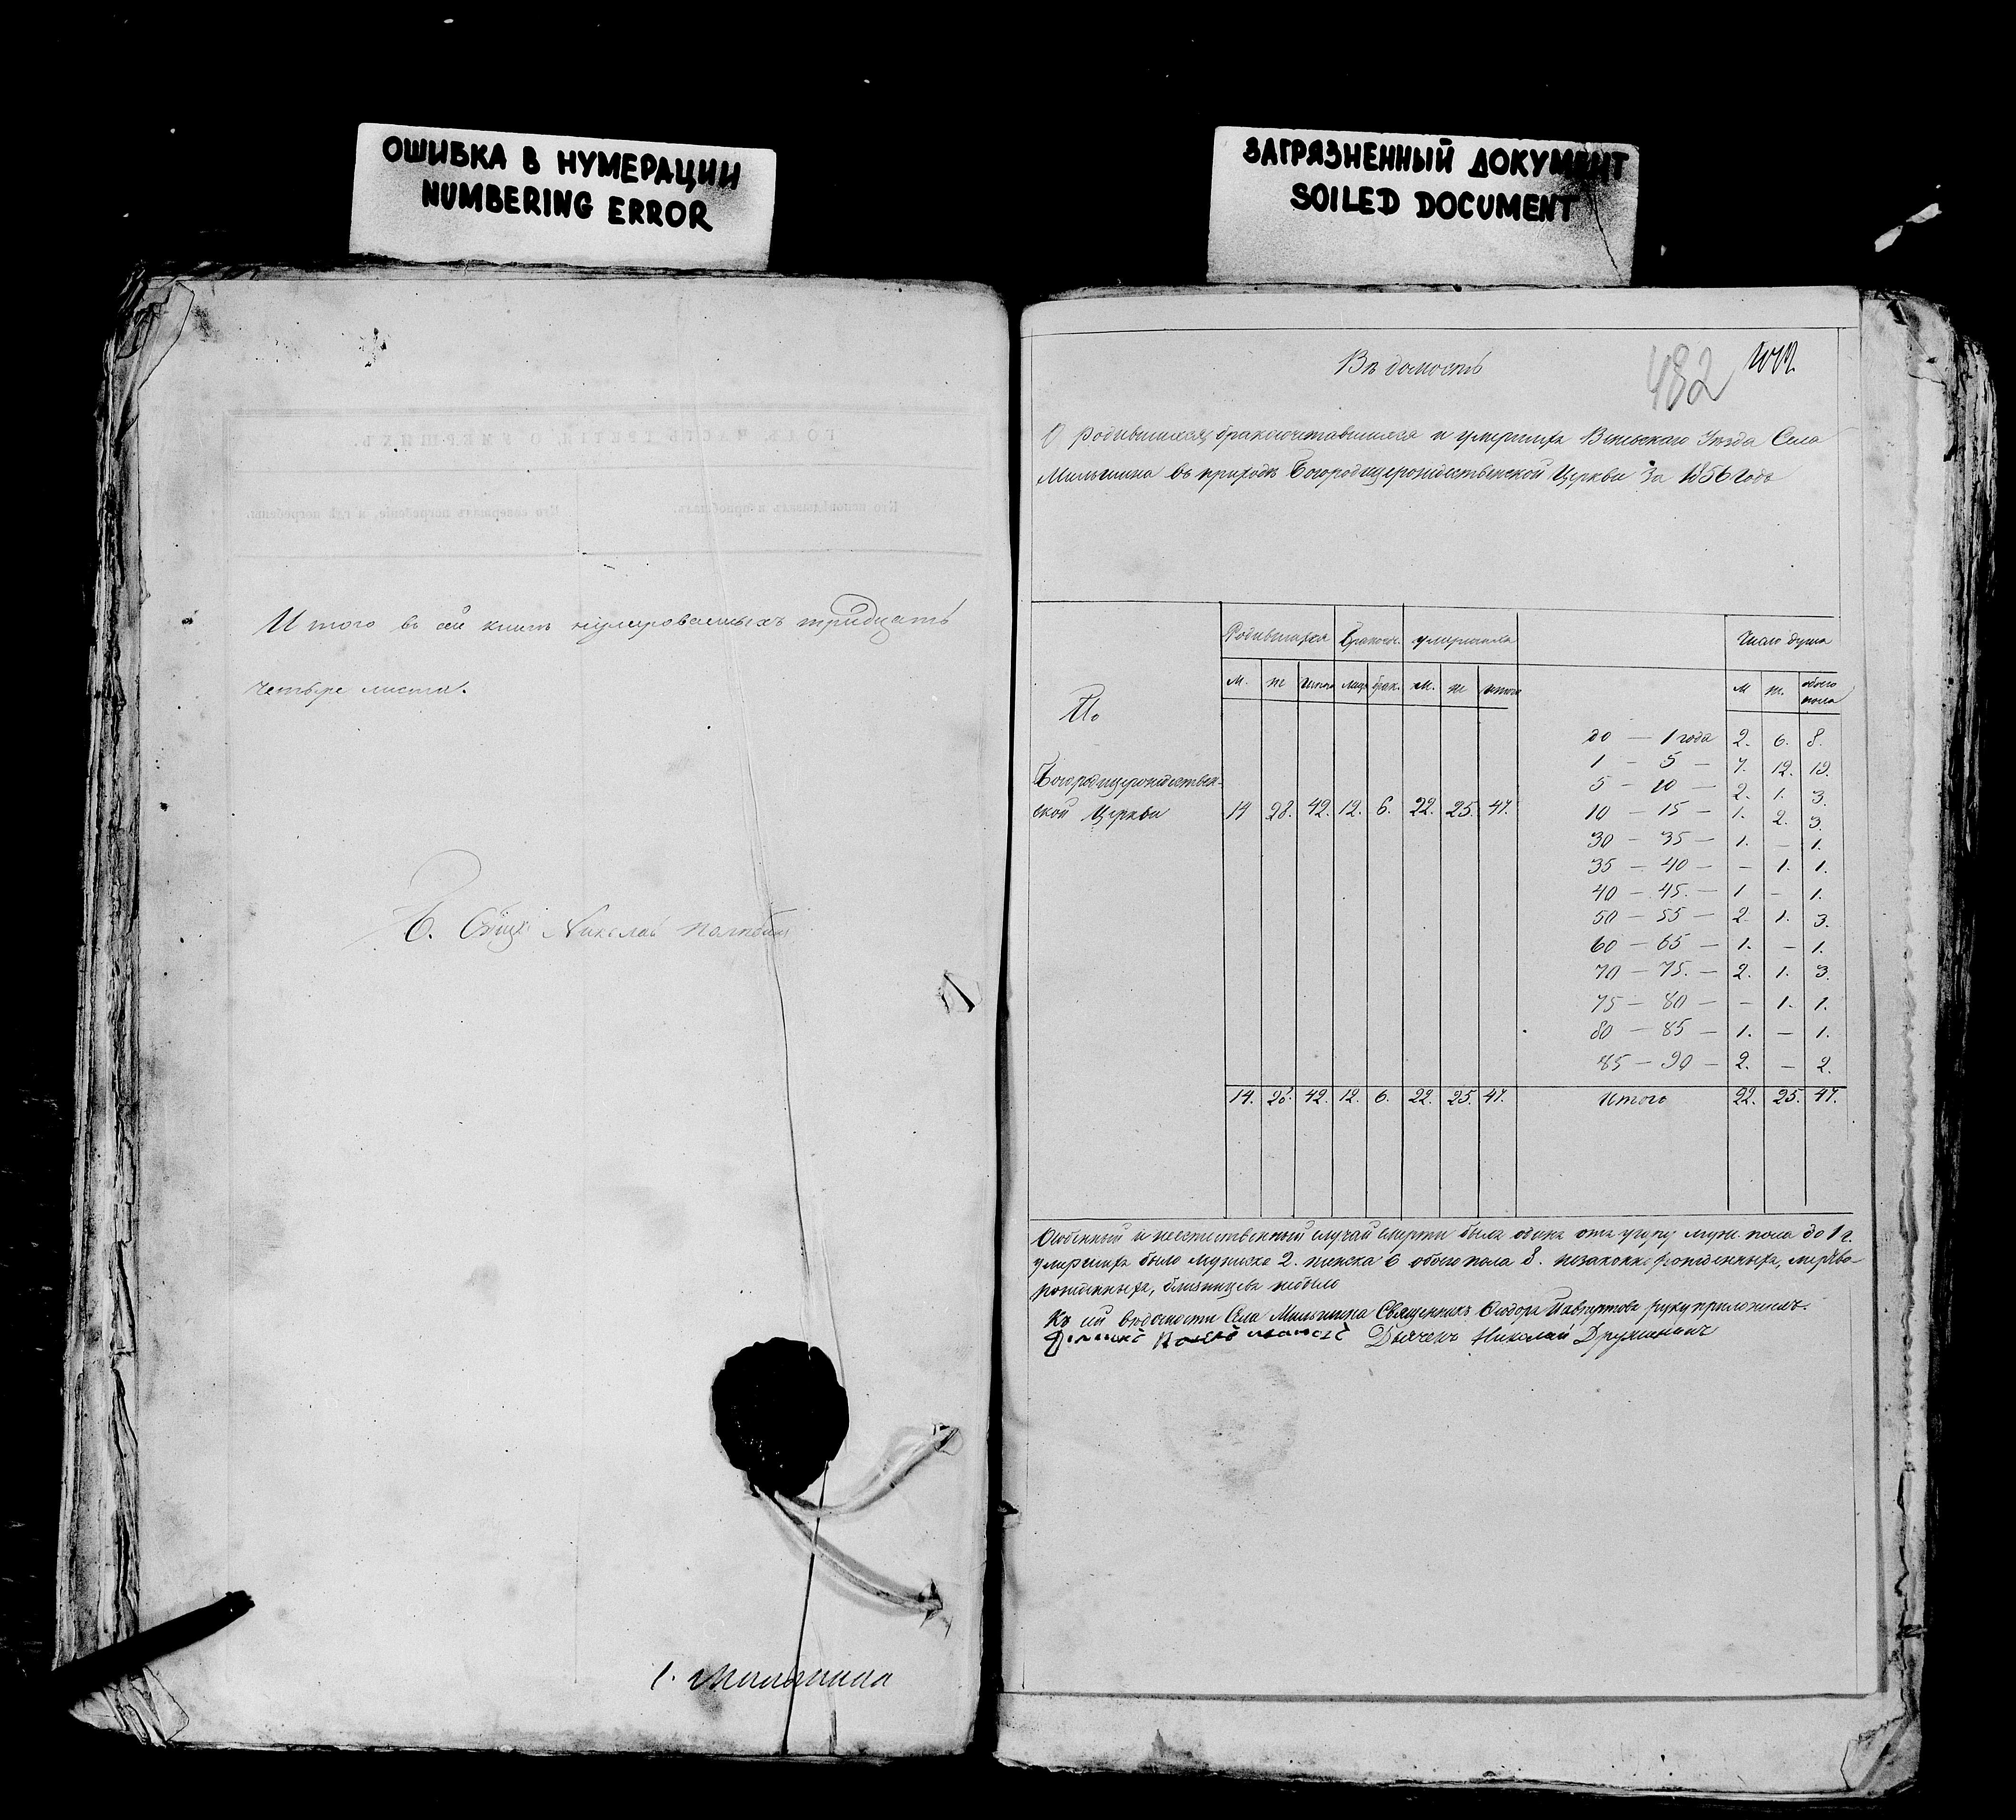 ОШИБКА В НУМЕРАЦИИ
NUMBERING ERROR
Итого въ сей книгѣ нумерованныхъ тридцать
четыре листа.
Николай
с. Мильшина
ЗАГРЯЗНЕННЫЙ ДОКУМЕНТ
SOILED DOCUMENT
482
Вѣдомость
О родившихся бракосочетавшихся и умершихъ Уѣзда Села
Мильшина въ приходѣ Богородицерождественской Церкви за 1856 годъ
Родившихся Бракосоч. умершихъ Число душъ
м. ж Итого лицъ брак. м. ж итого м ж. обоего пола
По
Богородицерождествен-
ской Церкви 14 28. 42. 12. 6. 22. 25. 47.
до — 1 года 2. 6. 8.
1 — 5 — 7. 12. 19.
5 — 10 — 2. 1. 3.
10 — 15 — 1. 2. 3.
30 — 35 — 1. — 1.
35 — 40 — — 1. 1.
40 — 45. — 1 — 1.
50 — 55 — 2 1. 3.
60 — 65 — 1. — 1.
70 — 75. — 2. 1. 3.
75 — 80 — — 1. 1.
80 — 85 — 1. — 1.
85 — 90 — 2. — 2.
14. 28. 42. 12. 6. 22. 25. 47. Итого 22. 25. 47.
Особенный и неестественный случай смерти былъ одинъ отъ угару муж. пола до 1 г.
умершихъ было мужска 2. женска 6 обоего пола 8. незаконно рожденныхъ, мертво-
рожденныхъ, близнецовъ небыло
Къ сей вѣдомости Села Мильшина Священникъ Ѳеодоръ руку приложилъ.
Дьячекъ Николай Дружининъ